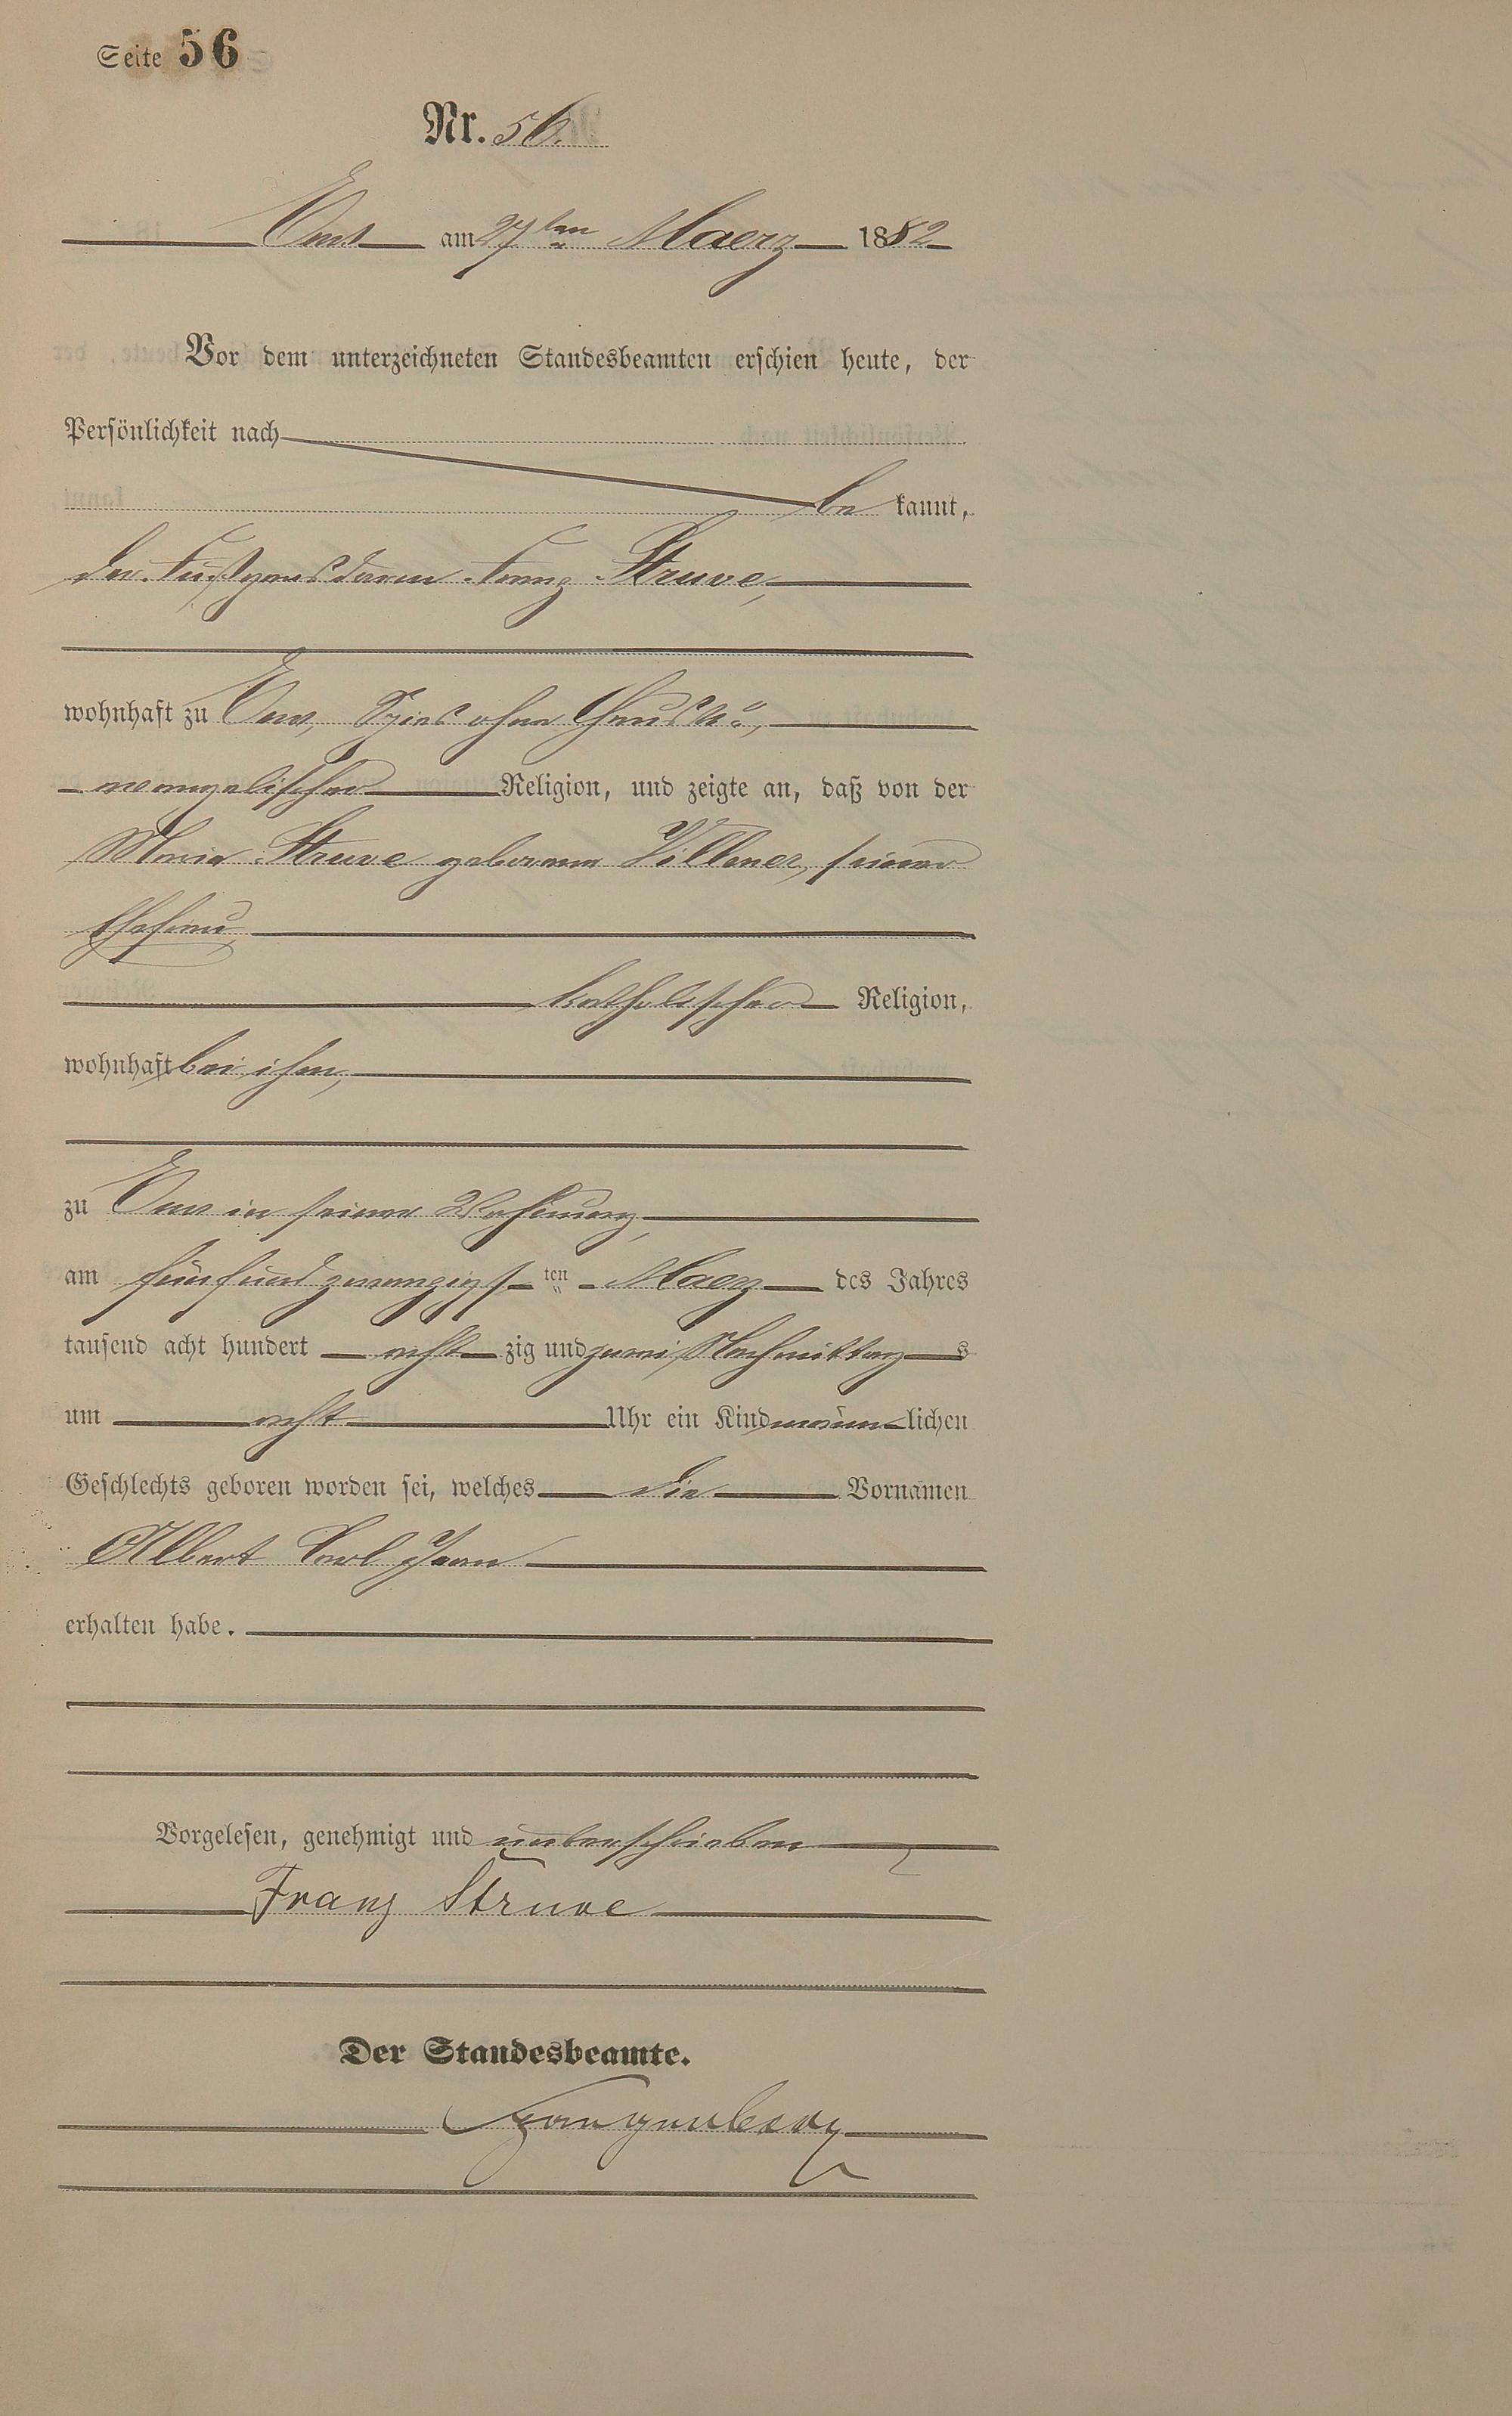 Seite 56
Nr. 56.
Ems am 27ten Maerz 1882
Vor dem unterzeichneten Standesbeamten erschien heute, der
Persönlichkeit nach
be kannt,
der Fußgendarm Franz Struve,
wohnhaft zu Ems, Spies ohne Haus No,
evangelischer Religion, und zeigte an, daß von der
Maria Struve geborenen Villmer, seiner
Ehefrau,
katholischer Religion,
wohnhaft bei ihm,
zu Ems in seiner Wohnung,
am fünfundzwanzigs ten Maerz des Jahres
tausend acht hundert acht zig und zwei Nachmittag s
um acht Uhr ein Kind männ lichen
Geschlechts geboren worden sei, welches die Vornamen
Albert Carl Jean
erhalten habe.
Vorgelesen, genehmigt und unterschrieben
Franz Struve
Der Standesbeamte.